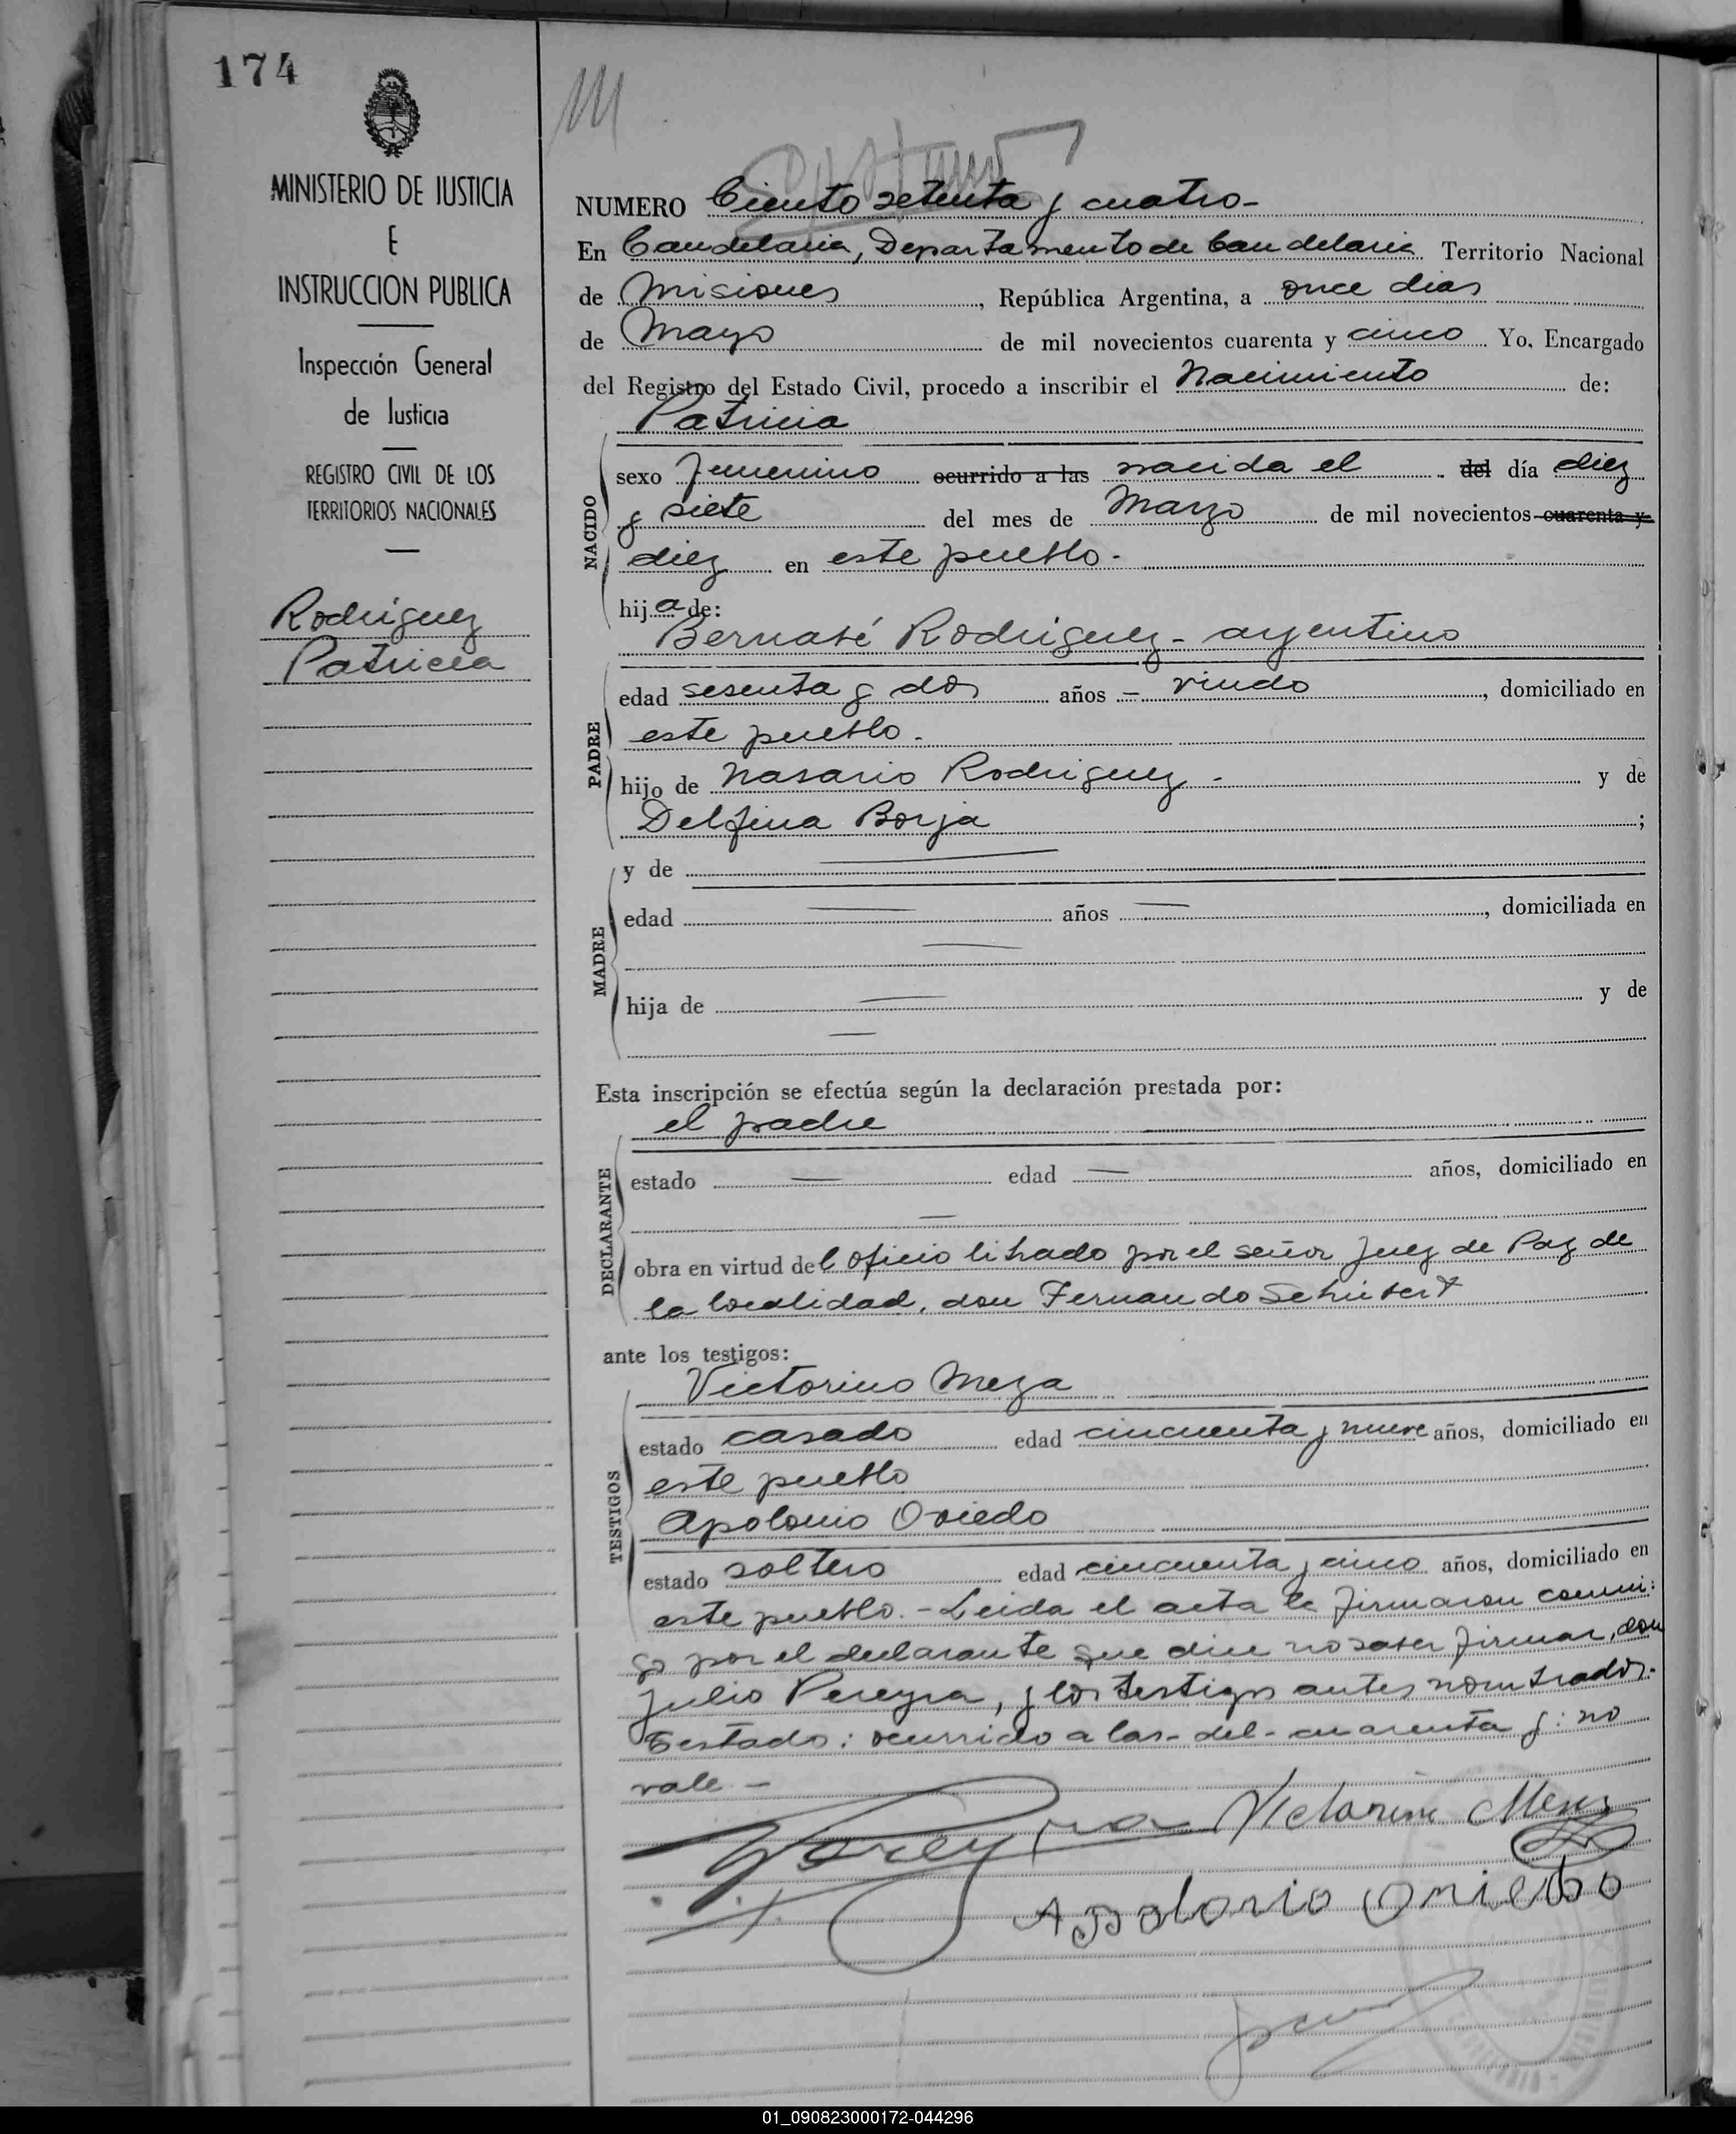 174
MINISTERIO DE JUSTICIA
E
INSTRUCCION PUBLICA
Inspección General
de Justicia
REGISTRO CIVIL DE LOS
TERRITORIOS NACIONALES
Rodriguez
Patricia
NUMERO Ciento setenta y cuatro-
En Candelaria, Departamento de Candelaria Territorio Nacional
de Misiones, República Argentina, a once dias
de Mayo de mil novecientos cuarenta y cinco Yo, Encargado
del Registro del Estado Civil, procedo a inscribir el Nacimiento de:
Patricia
NACIDO
sexo femenino ocurrido a las nacida el del día diez
y siete del mes de Marzo de mil novecientos cuarenta y
diez en este pueblo.-
hija de:
Bernabé Rodriguez - argentino
PADRE
edad sesenta y dos años - viudo, domiciliado en
este pueblo.
hijo de Nasario Rodriguez - y de
Delfina Borja ;
MADRE
y de
edad años , domiciliada en
hija de y de
Esta inscripción se efectúa según la declaración prestada por:
el padre
DECLARANTE
estado edad años, domiciliado en
obra en virtud del oficio librado por el señor Juez de Paz de
la localidad, don Fernando Schubert
ante los testigos:
TESTIGOS
Victorino Meza
estado casado edad cincuenta y nueve años, domiciliado en
este pueblo
Apolonio Oviedo
estado soltero edad cincuenta y cinco años, domiciliado en
este pueblo.- Leida el acta la firmaron conmi:
go por el declarante que dice no saber firmar, don
Julio Pereyra, y los testigos antes nombrados.-
Testado: ocurrido a las- del- cuarenta y: no
vale -
Pereyra Victorino Meza
Apolonio Oviedo
01_090823000172-044296